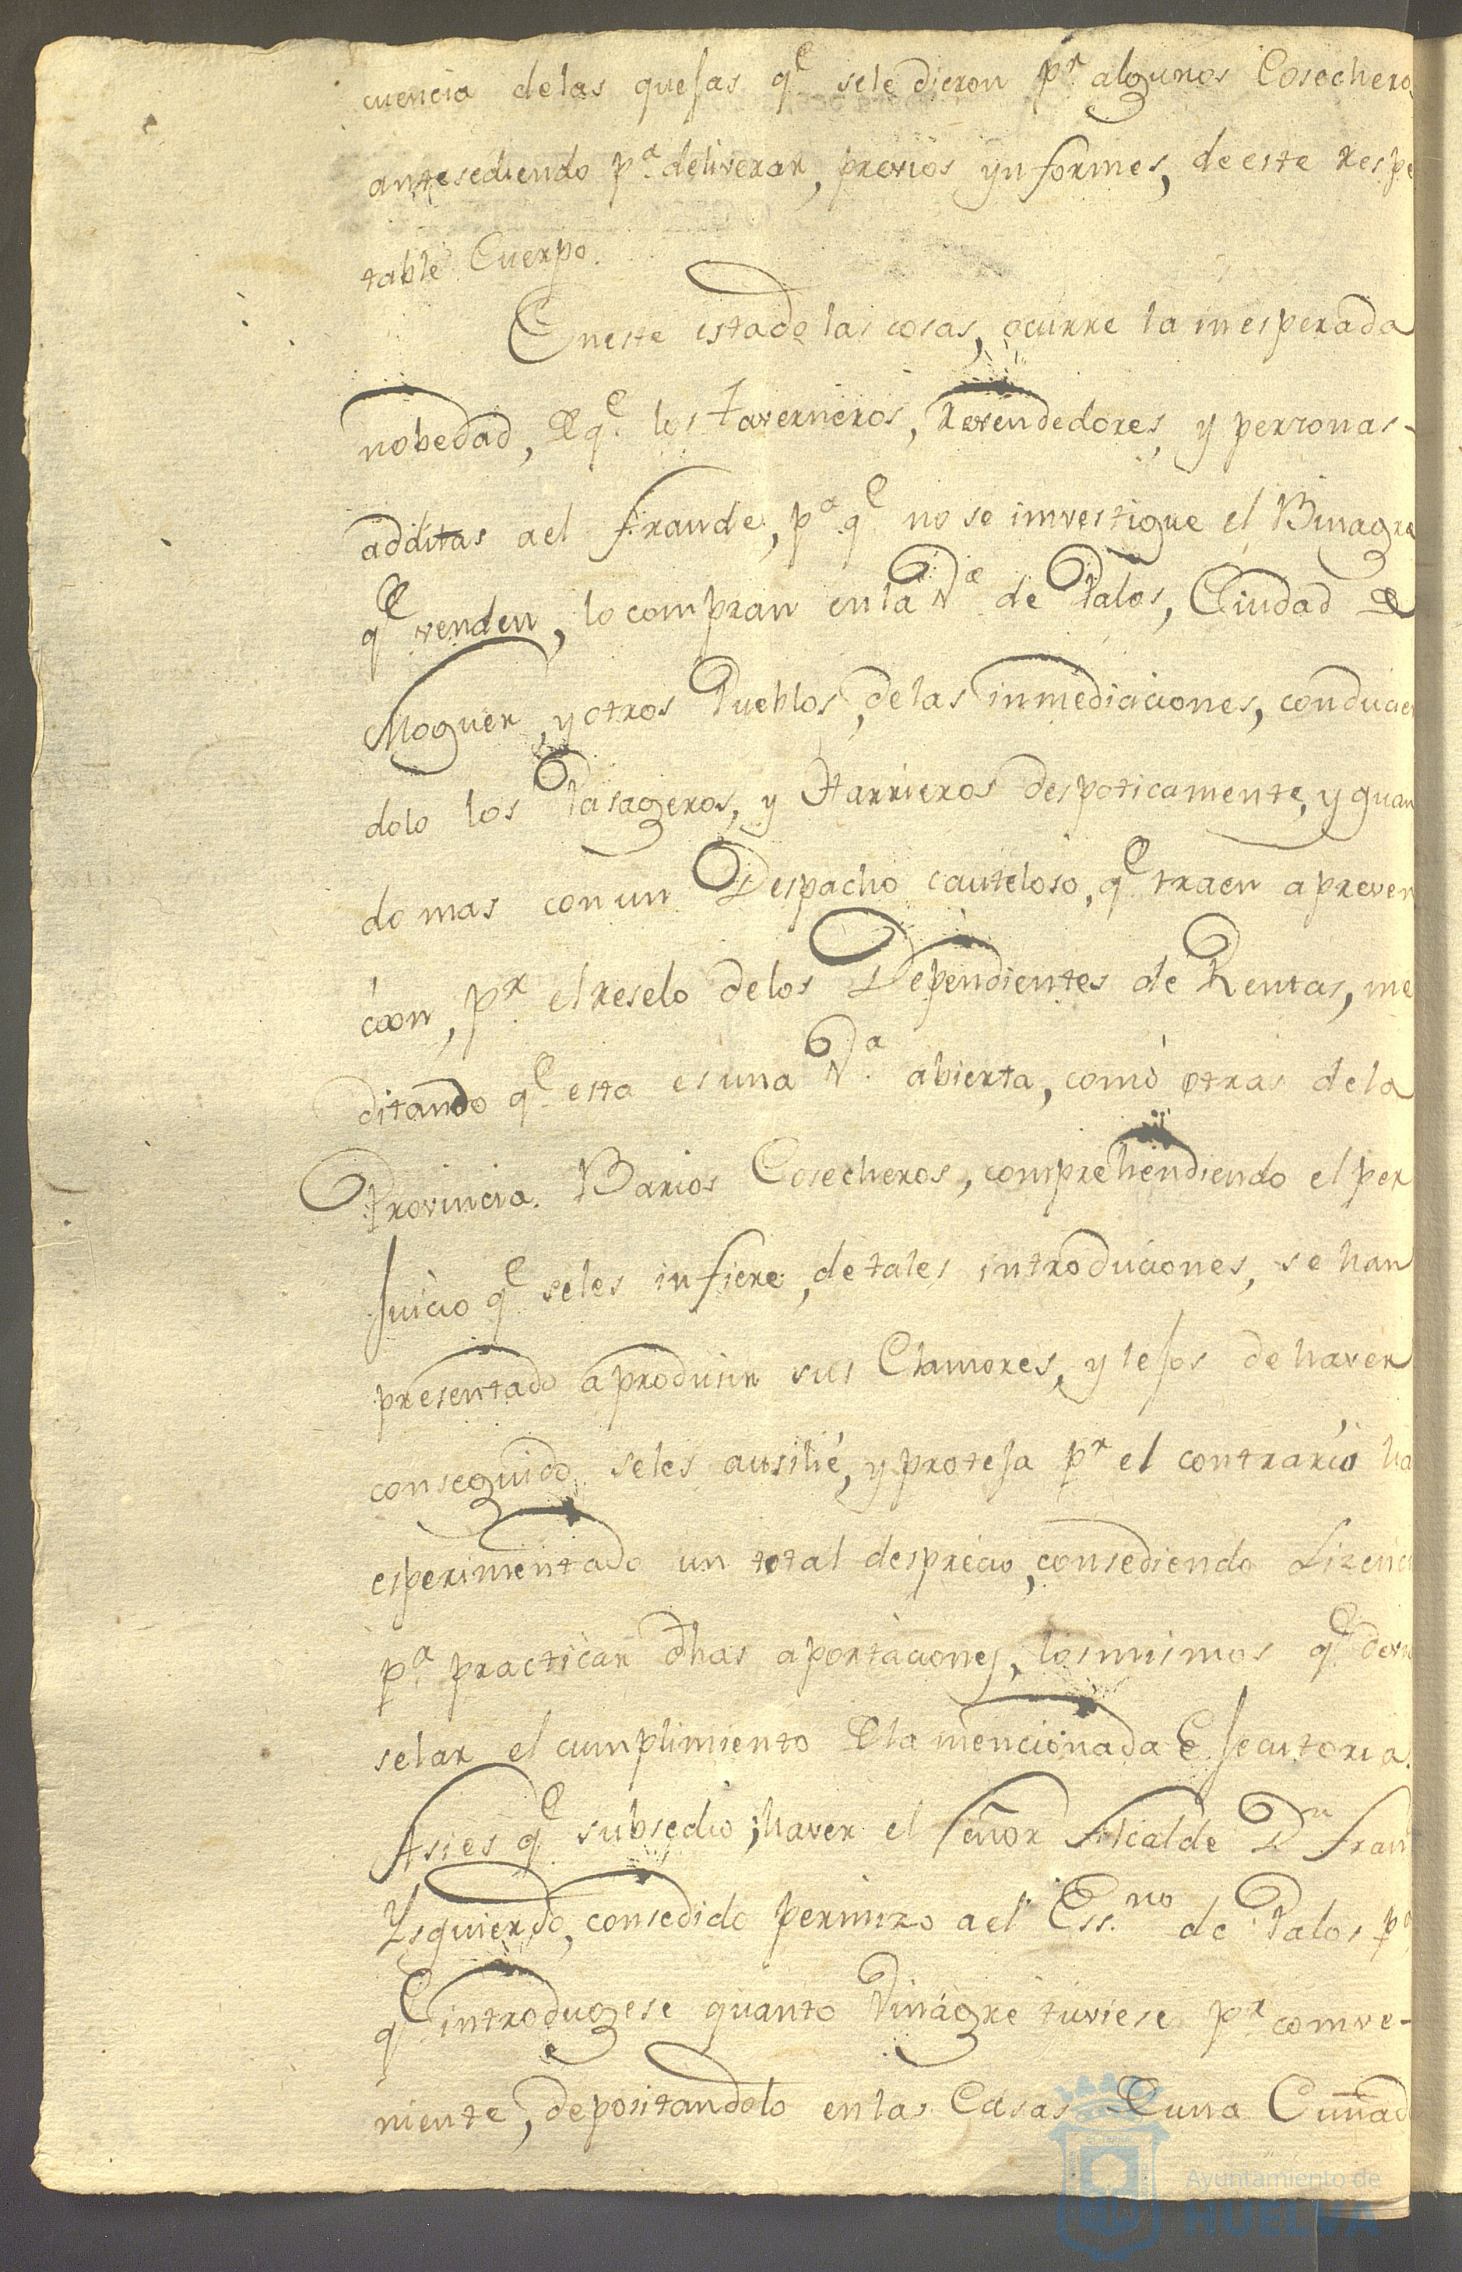 cuencia delas quejas qe sele dieron pr algunos Cosechero
antesediendo pa deliverar, previos ynformes, de este respe
table Cuerpo.
Eneste estado las cosas, ocurre la inesperada
nobedad, de qe los Taverneros, Revendedores, y personas-
additas ael fraude, pa qe no se imvestigue el Binagre
qe venden, lo compran enla Va de Palos, Ciudad de
Moguer, y otros Pueblos, delas inmediciones, conducien
dolo los Pasageros, y Harrieros despoticamente, y quan
do mas con un Despacho cauteloso, qe traen a preven
cion, pr el reselo delos Dependientes de Rentas, me
ditando qe esta es una Va abierta, comò otras dela
Provincia. Barios Cosecheros, comprehendiendo el per
juicio qe seles infiere, de tales introduciones, se han
presentado a produsir sus Clamores, y lejos de haver
conseguido seles ausilié, y proteja pr el contrario ha
esperimentado un total desprecio, consediendo Lizenci
pa practicar dhas aportaciones, los mismos qe deven
selar el cumplimiento de la mencionada Ejecutoria.
Asi es qe subsedio, haver el Señor Alcalde Dn Fran
Ysquierdo, consedido permizo ael Essno de Palos pa
qe introdugese quanto Vinagre tuviese pr comve-
niente, depositandolo en las Casas de una Cuñad
Ayuntamiento de
HUELVA